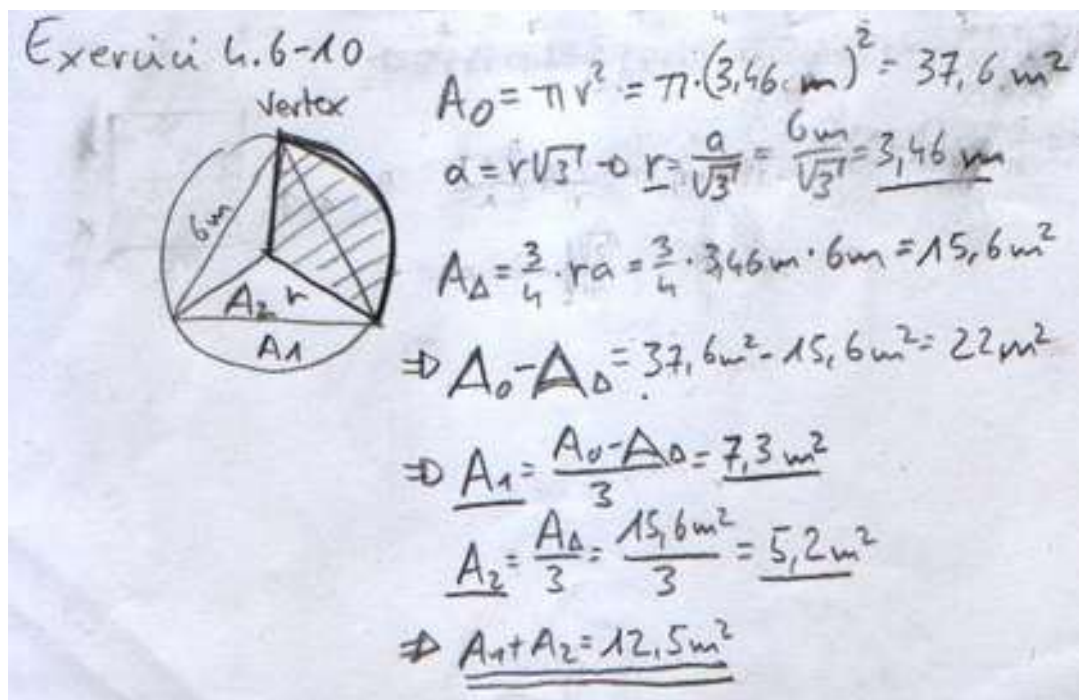 Exercici 4.6-10
Vertex
6m
A₂ r
A1
A₀ = π r² = π·(3,46 m)² = 37,6 m²
a = r√3 → r = a/√3 = 6m/√3 = 3,46 m
A△ = 3/4 · ra = 3/4 · 3,46m · 6m = 15,6m²
⇒ A₀-A△ = 37,6m²-15,6m² = 22m²
⇒ A₁ = (A₀-A△)/3 = 7,3 m²
A₂ = A△/3 = 15,6m²/3 = 5,2m²
⇒ A₁+A₂ = 12,5m²